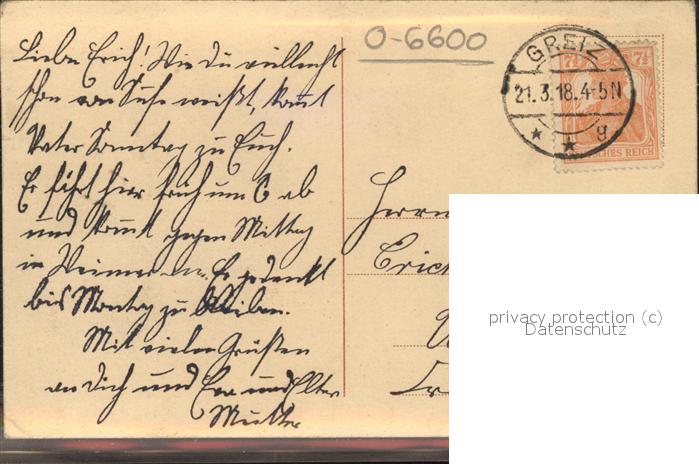 O-6600
GREIZ
21.3.18.4-5N
* * g
7½ 7½
DEUTSCHES REICH
Lieber Erich! Wie du vielleicht
schon von Suse weißt, kommt
Vater Sonntag zu Euch.
Er fährt hier früh um 6 ab
und kommt gegen Mittag
in Weimar an. Er gedenkt
bis Montag zu bleiben.
Mit vielen Grüßen
an dich und
Mutter
Herrn
Erich
privacy protection (c)
Datenschutz